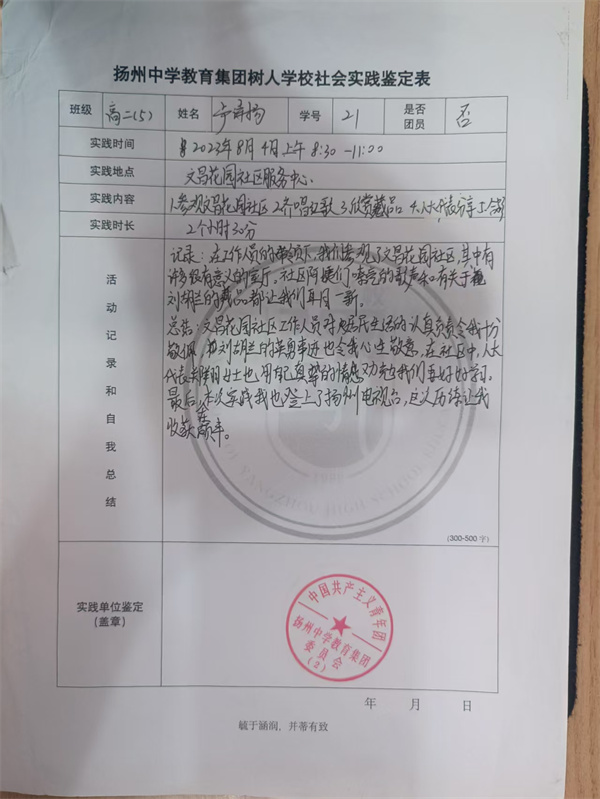 扬州中学教育集团树人学校社会实践鉴定表
班级 高二(5) 姓名 扬 学号 21 是否团员 否
实践时间 2023年8月4日上午8:30-11:00
实践地点 文昌花园社区服务中心.
实践内容 1.参观文昌花园社区 2.齐唱红歌 3.欣赏藏品 4.人大代表分享工作
实践时长 2个小时30分
活动记录和自我总结
记录:在工作人员的带领下,我们参观了文昌花园社区,其中有
许多很有意义的室厅。社区阿姨们嘹亮的歌声和有关于
刘胡兰的藏品都让我们耳目一新。
总结:文昌花园社区工作人员对居民生活的认真负责令我十分
敬佩,刘胡兰的英勇事迹也令我心生敬意,在社区中,人大
代表女士也用自己真挚的情感劝勉我们要好好学习。
最后,本次实践我也登上了扬州电视台,这次历练让我
收获颇丰。
(300-500 字)
实践单位鉴定
(盖章)
中国共产主义青年团
扬州中学教育集团
委员会
(2)
年 月 日
毓于涵润,并蒂有致